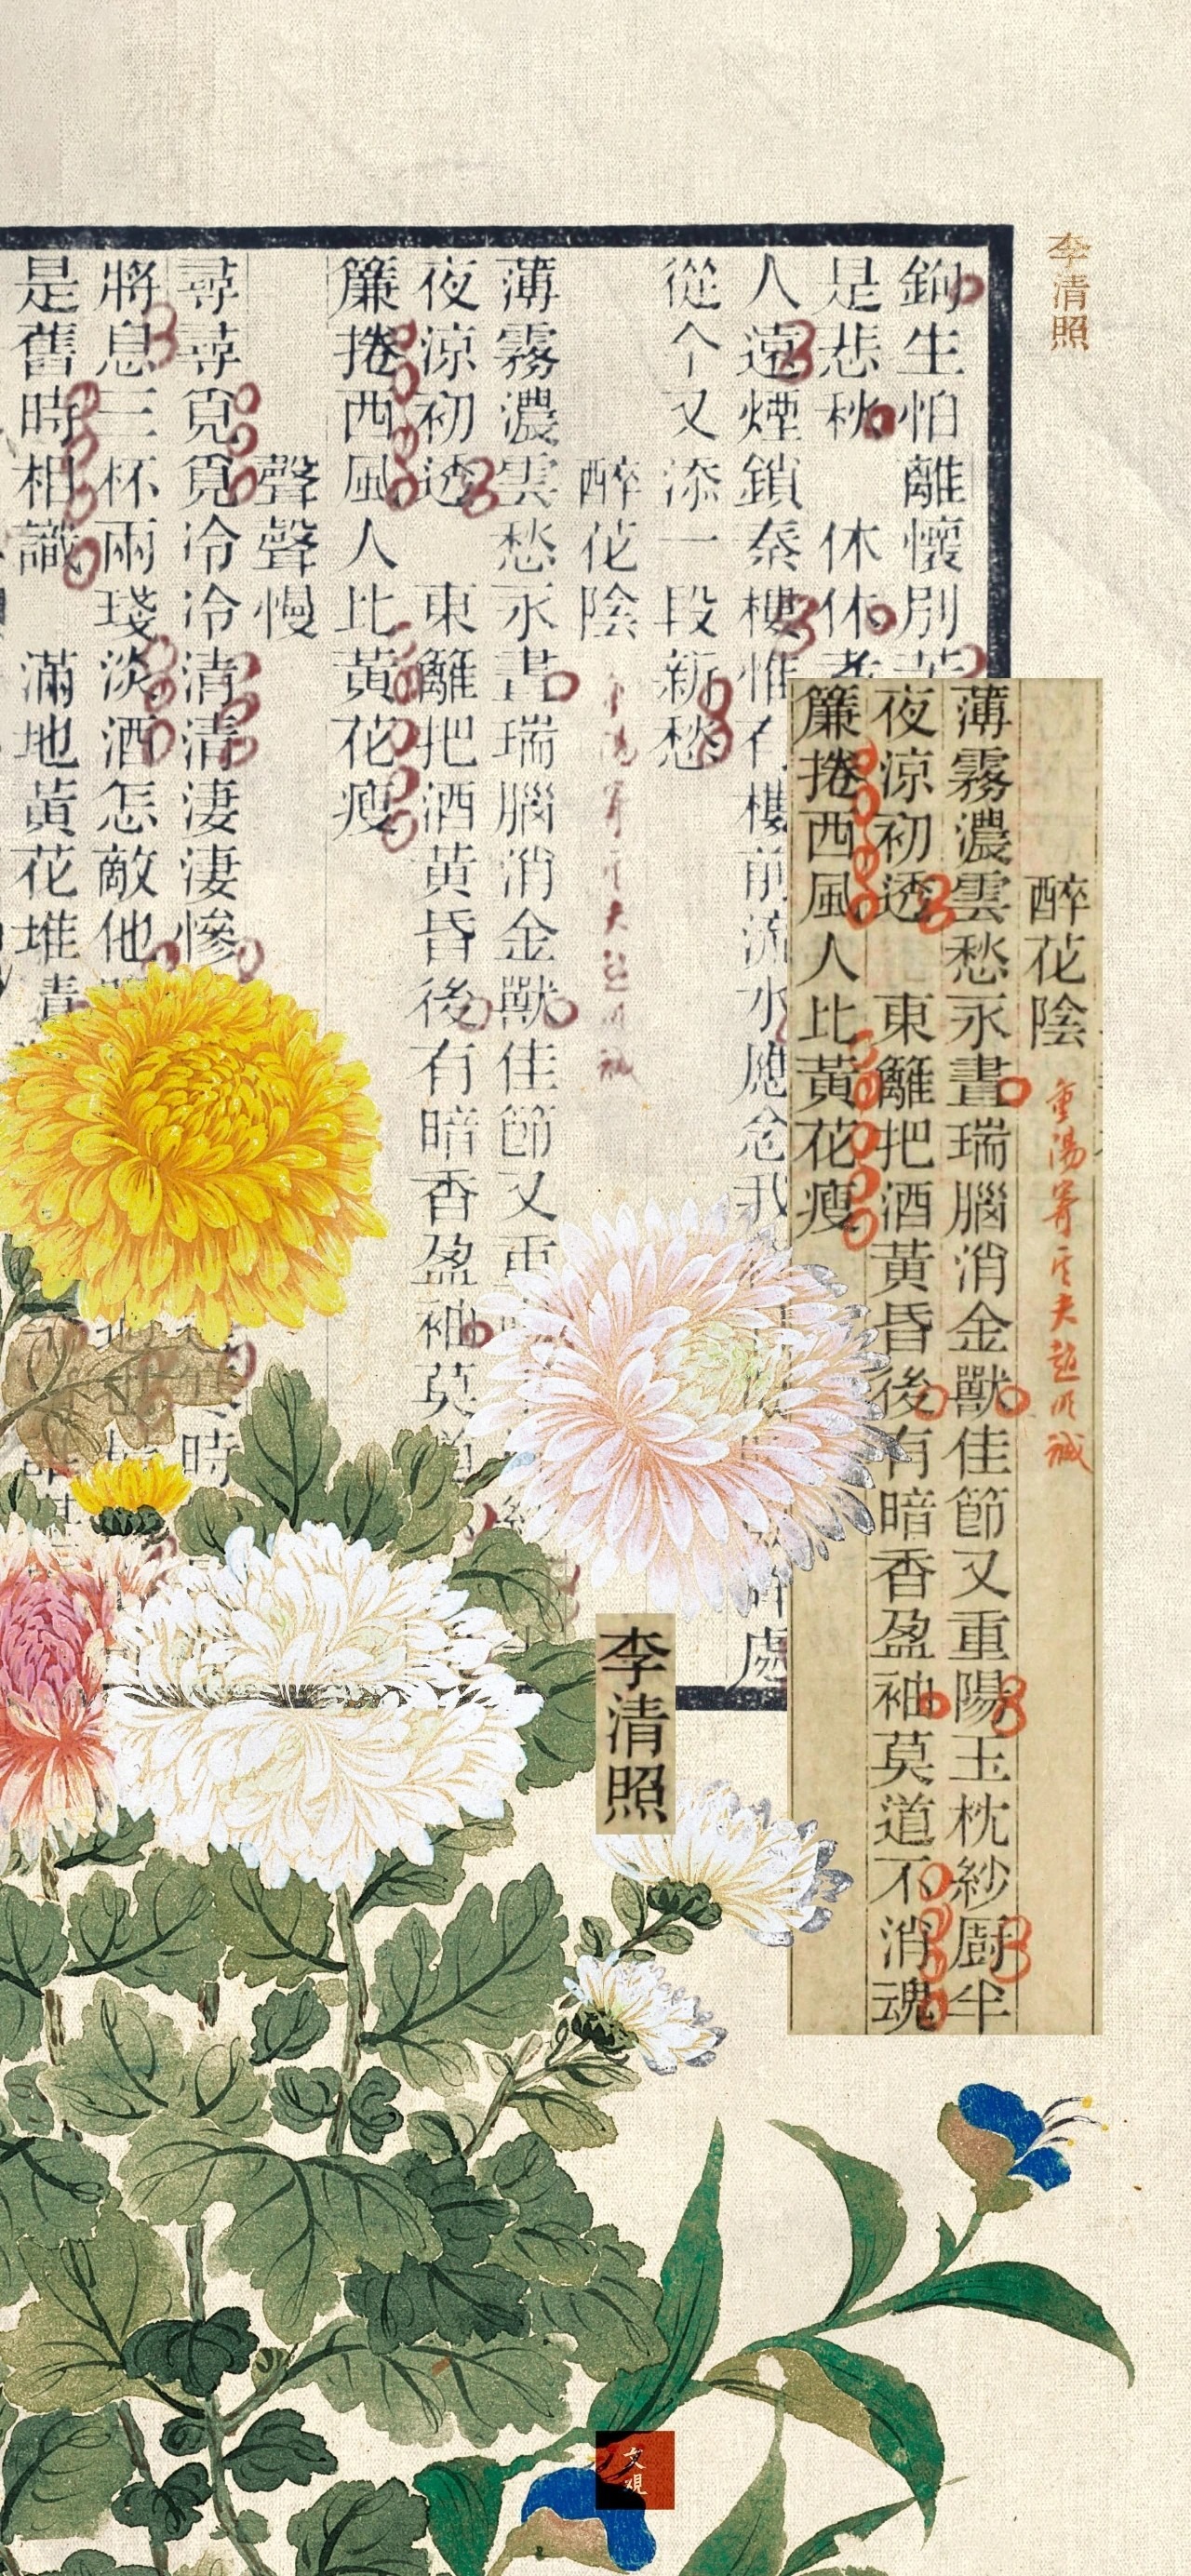 李清照
鉤生怕離懷別
是悲秋 休休
人遠煙鎖秦樓惟有樓前流水應念我 處
從个又添一段新愁
醉花陰
薄霧濃雲愁永晝瑞腦消金獸佳節又重
夜涼初透 東籬把酒黃昏後有暗香盈袖莫道
簾捲西風人比黃花瘦
聲聲慢
尋尋覓覓冷冷清清淒淒慘 時
將息三杯兩琖淡酒怎敵他
是舊時相識 滿地黃花堆積
醉花陰 重陽寄 夫趙明誠
薄霧濃雲愁永晝瑞腦消金獸佳節又重陽玉枕紗廚半
夜涼初透 東籬把酒黃昏後有暗香盈袖莫道不消魂
簾捲西風人比黃花瘦
李清照